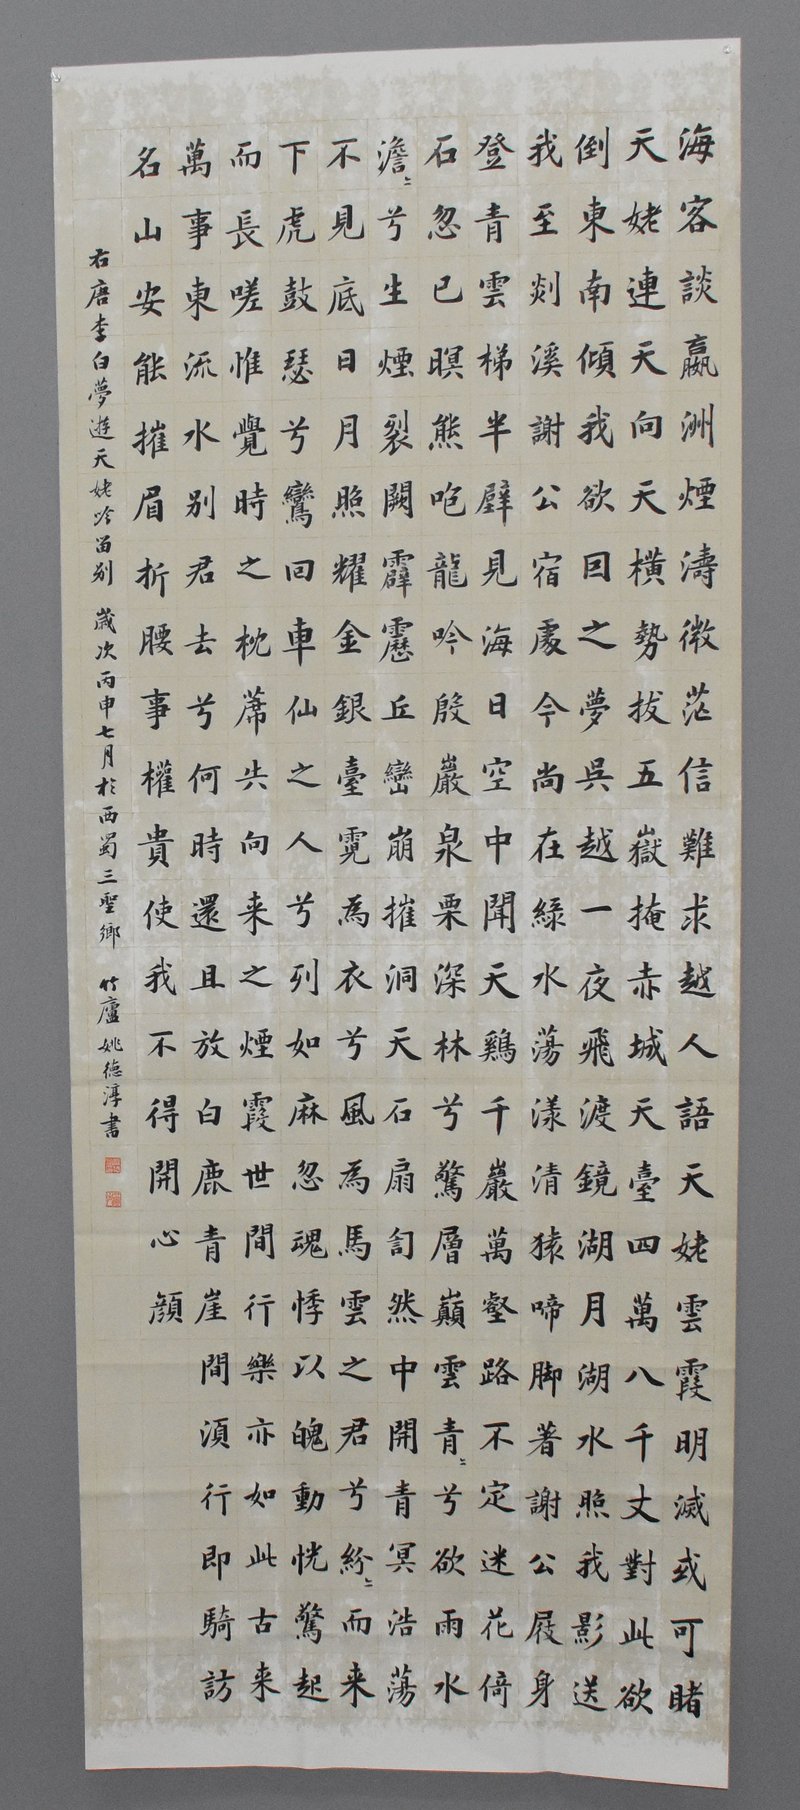 海客談嬴洲煙濤微茫信難求越人語天姥雲霞明滅或可睹
天姥連天向天橫勢拔五嶽掩赤城天臺四萬八千丈對此欲
倒東南傾我欲因之夢吳越一夜飛渡鏡湖月湖水照我影送
我至剡溪謝公宿處今尚在綠水蕩漾清猿啼脚著謝公屐身
登青雲梯半壁見海日空中聞天鷄千巖萬壑路不定迷花倚
石忽已暝熊咆龍吟殷巖泉栗深林兮驚層巔雲青〻兮欲雨水
澹〻兮生煙裂闕霹靂丘巒崩摧洞天石扇訇然中開青冥浩蕩
不見底日月照耀金銀臺霓為衣兮風為馬雲之君兮紛〻而来
下虎鼓瑟兮鸞回車仙之人兮列如麻忽魂悸以魄動恍驚起
而長嗟惟覺時之枕蓆失向来之煙霞世間行樂亦如此古来
萬事東流水别君去兮何時還且放白鹿青崖間須行即騎訪
名山安能摧眉折腰事權貴使我不得開心顏
右唐李白夢遊天姥吟留别 歲次丙申七月於西蜀三聖鄉 竹廬姚德淳書